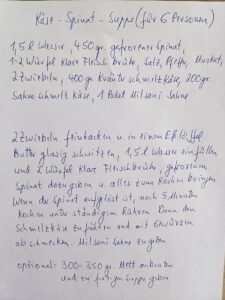 Käse - Spinat - Suppe (für 6 Personen)
1,5 l Wasser, 450 gr. gefrorener Spinat,
1-2 Würfel klare Fleischbrühe, Salz, Pfeffer, Muskat,
2 Zwiebeln, 400 gr Kräuterschmelzkäse, 200 gr.
Sahneschmelzkäse, 1 Paket Milsani Sahne
2 Zwiebeln feinhacken u in einem Eßlöffel
Butter glasig schwitzen, 1,5 l Wasser einfüllen
und 2 Würfel klare Fleischbrühe, gefrorenen
Spinat dazugeben u. alles zum Kochen bringen.
Wenn der Spinat aufgelöst ist, noch 5 Minuten
Kochen unter ständigem Rühren. Dann den
Schmelzkäse zuführen und mit Gewürzen
abschmecken, Milsani Sahne zugeben.
optional: 300-350 gr. Mett anbraten
und zur fertigen Suppe geben